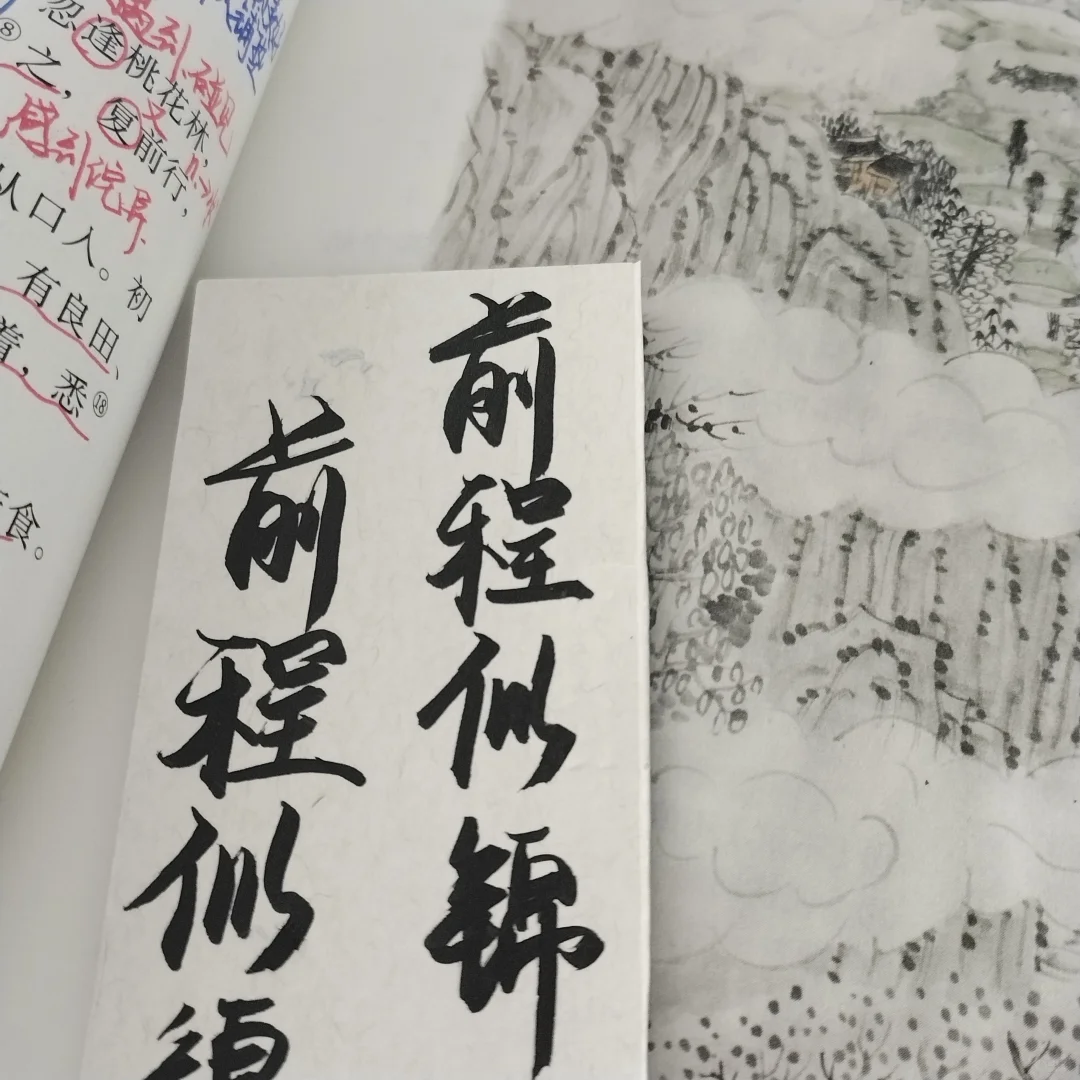 忽逢桃花林，
⑧之，复前行，
从口入。初
有良田、
着，悉⑱
食。
遇到、碰见
又
感到诧异
前程似锦
前程似